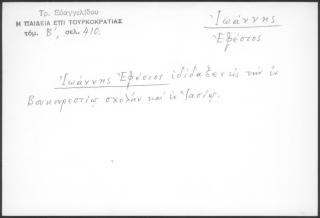 Τρ. Εὐαγγελίδου
Η ΠΑΙΔΕΙΑ ΕΠΙ ΤΟΥΡΚΟΚΡΑΤΙΑΣ
τόμ. Β', σελ. 410.
Ἰωάννης
Ἐφέσιος
Ἰωάννης Ἐφέσιος ἐδίδαξεν εἰς τὴν ἐν
Βουκουρεστίῳ σχολὴν καὶ ἐν Ἰασίῳ.